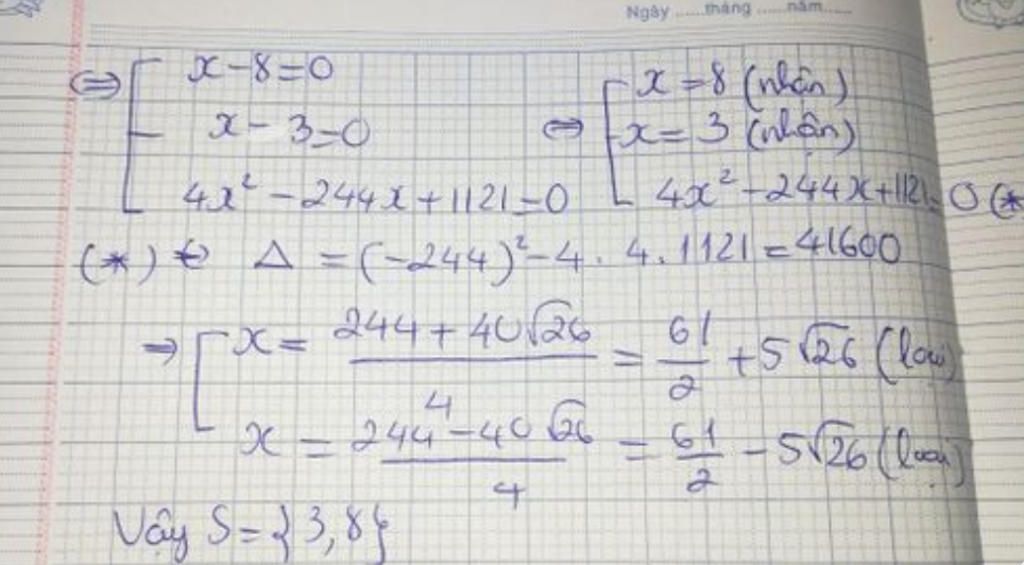 Ngày ......tháng ......năm......
⇔ [ x - 8 = 0
x - 3 = 0
4x² - 244x + 1121 = 0
⇔ [ x = 8 (nhận)
x = 3 (nhận)
4x² - 244x + 1121 = 0 (*
(*) ⇔ Δ = (-244)² - 4 . 4 . 1121 = 41600
⇒ [ x = (244 + 40√26)/4 = 61/2 + 5√26 (loại)
x = (244 - 40√26)/4 = 61/2 - 5√26 (loại)
Vậy S = {3, 8}